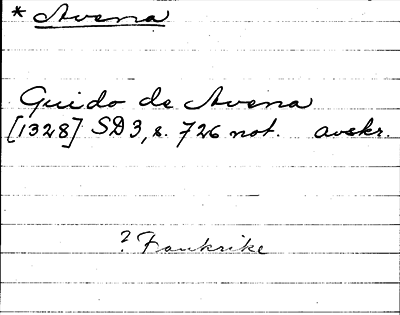 * Avena
Guido de Avena
[1328] SD 3, s. 726 not. avskr.
? Frankrike